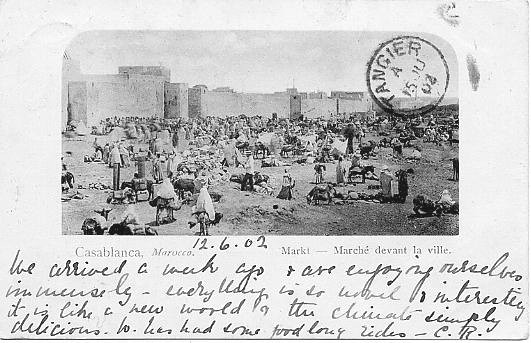 TANGIER
A
15 JU
02
Casablanca, Morocco. 12.6.02 Markt — Marché devant la ville.
We arrived a week ago & are enjoying ourselves
immensely - everything is so novel & interesting
it is like a new world & the climate simply
delicious. W. has had some good long rides - C. R.